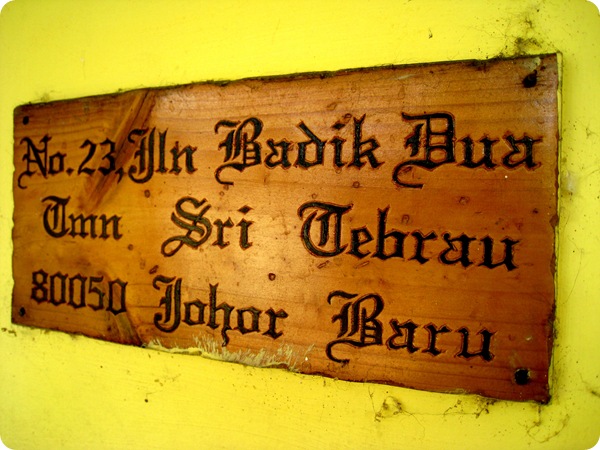 No. 23, Jln Badik Dua
Tmn Sri Tebrau
80050 Johor Baru